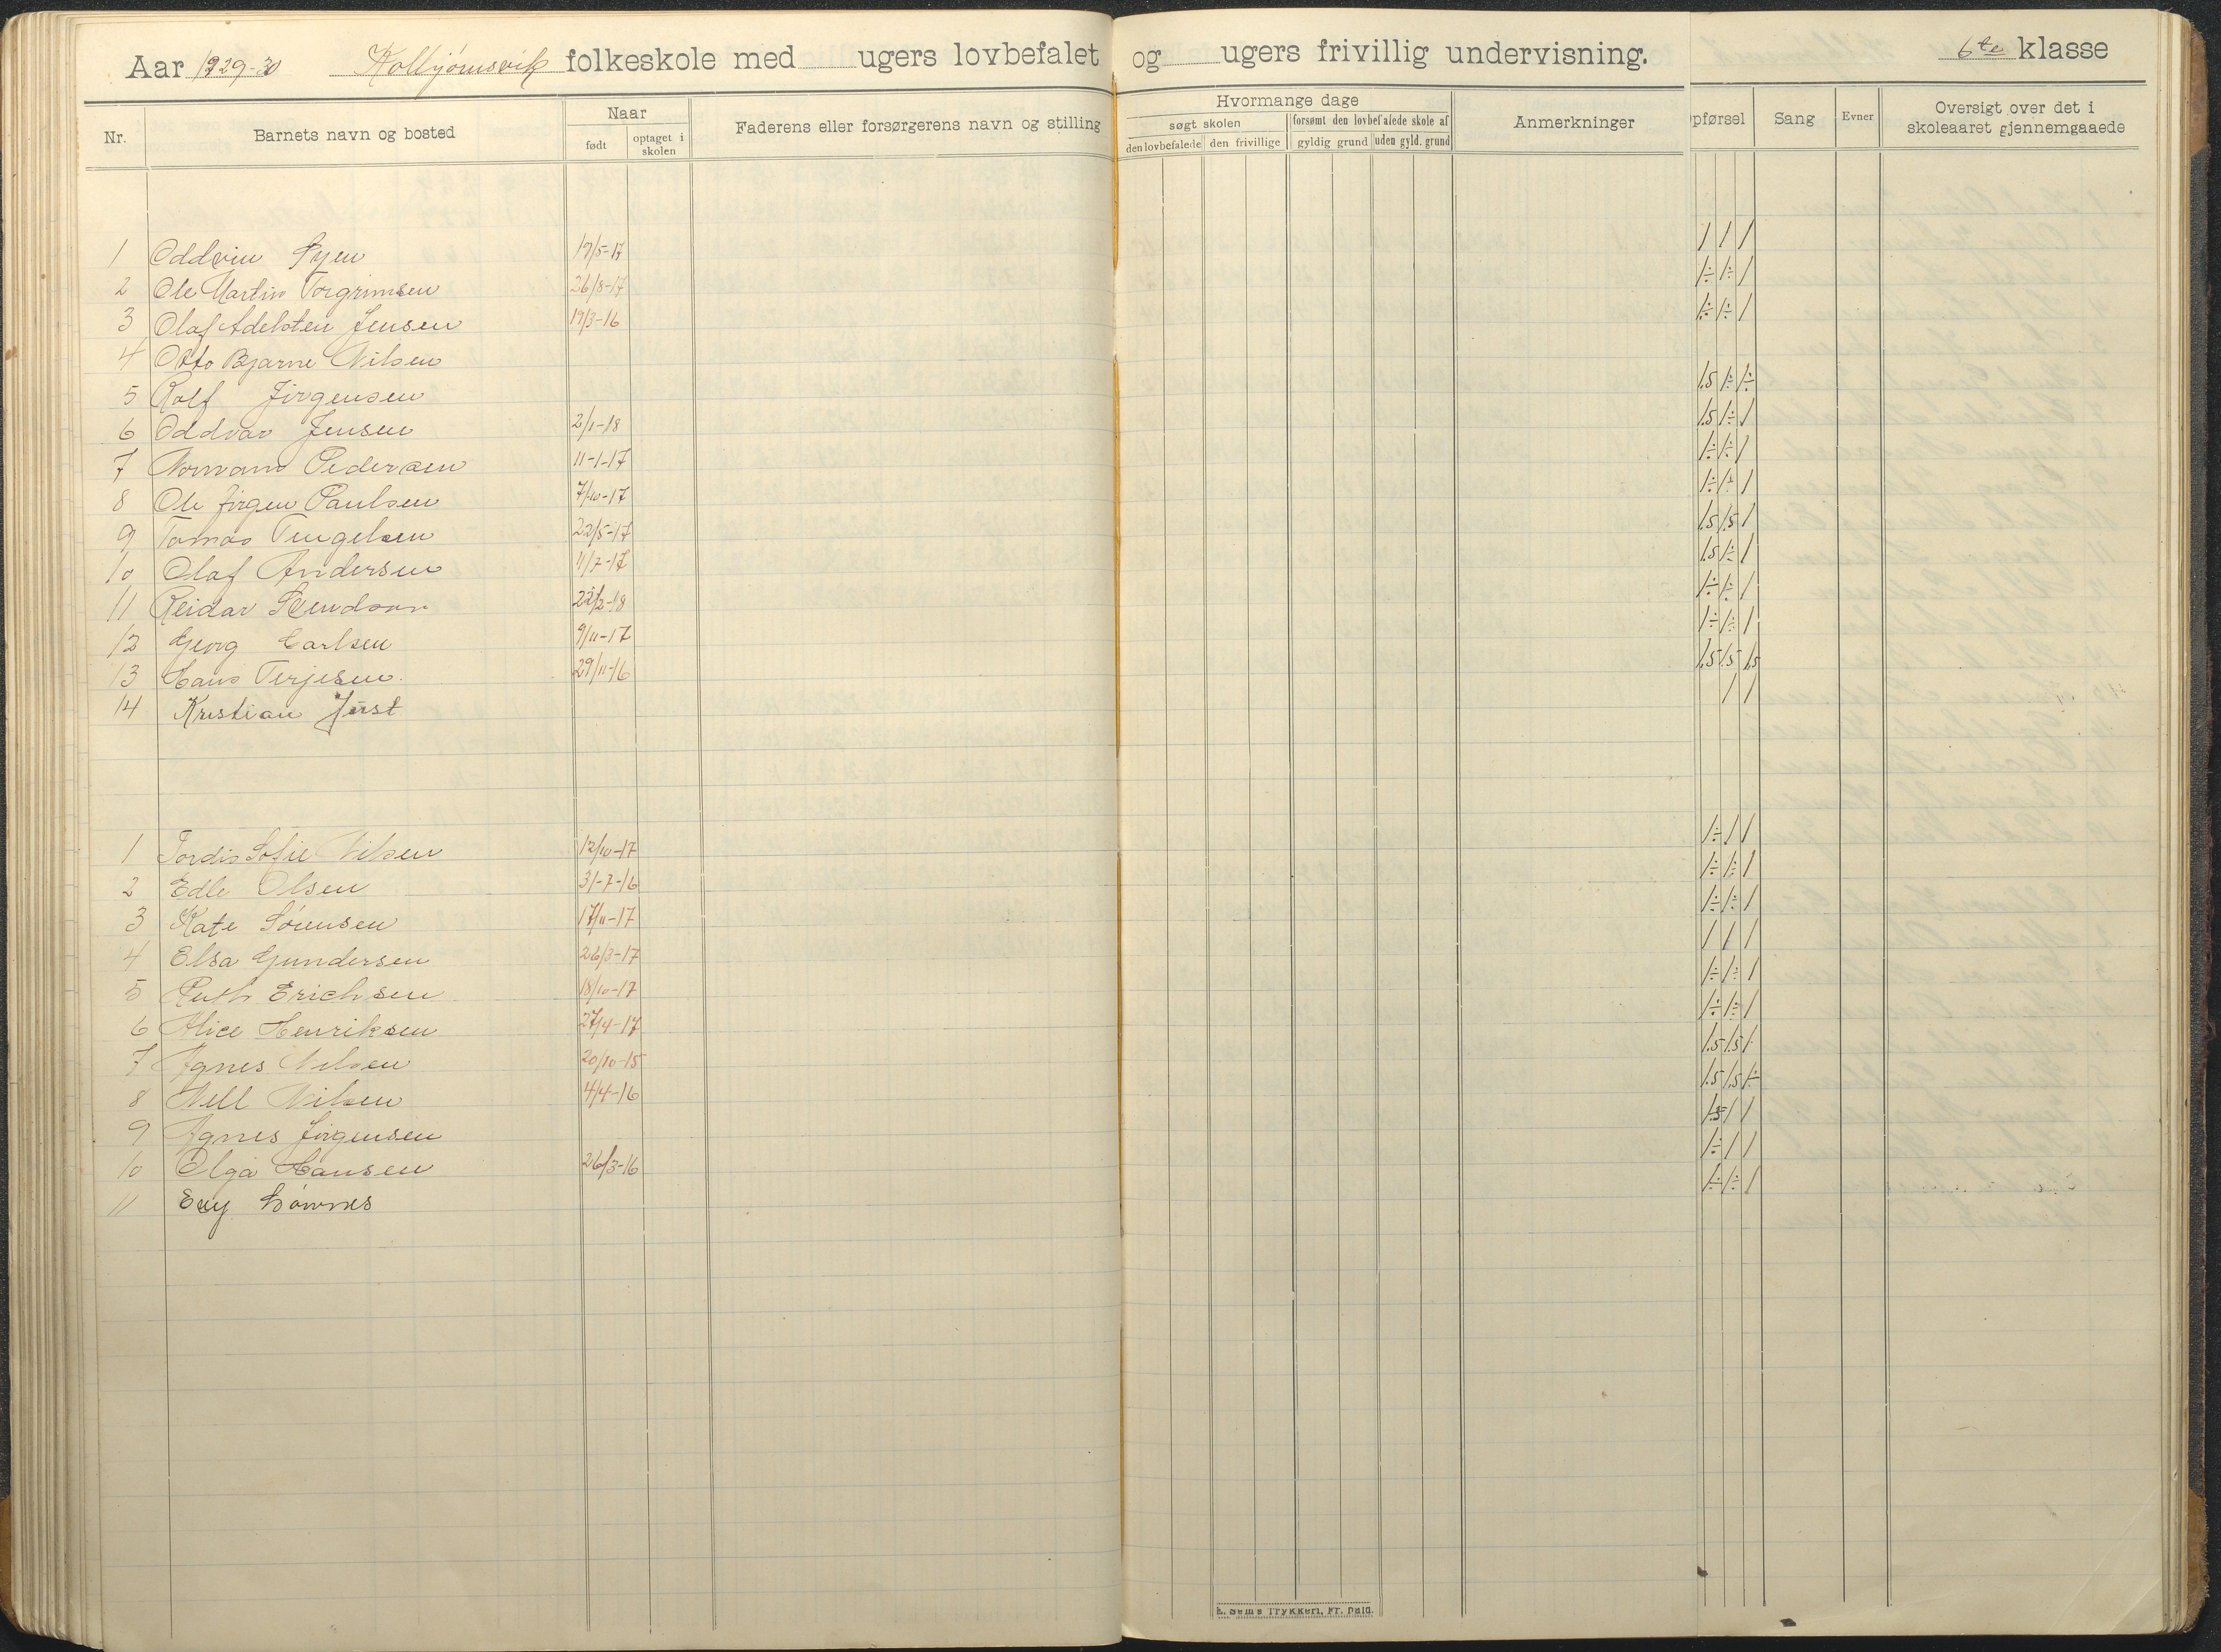 Aar 1929-30 Kolbjörnsvik folkeskole med ugers lovbefalet og ugers frivillig undervisning. 6te klasse
Nr. Barnets navn og bosted Naar født optaget i skolen Faderens eller forsørgerens navn og stilling Hvormange dage søgt skolen den lovbefalede den frivillige forsømt den lovbefalede skole af gyldig grund uden gyld. grund Anmerkninger pførsel Sang Evner Oversigt over det i skoleaaret gjennemgaaede
1 Oddvin 19/5-17 1 1 1
2 Ole Martin Torgrimsen 26/8-17 1÷ 1÷ 1
3 Olaf Adelsten Jensen 19/3-16 1÷ 1÷ 1
4 Otto Bjarne Nilsen
5 Rolf Jörgensen 1.5 1÷ 1÷
6 Oddvar Jensen 2/1-18 1.5 1÷ 1
7 Normann Pedersen 11-1-17 1÷ 1÷ 1
8 Ole Jörgen Paulsen 7/10-17 1÷ 1÷ 1
9 Tomas Tengelsen 22/5-17 1.5 1.5 1
10 Olaf Andersen 11/7-17 1.5 1÷ 1
11 Reidar Svendsen 22/2-18 1÷ 1÷ 1
12 Georg Carlsen 9/11-17 1÷ 1÷ 1
13 Hans Terjesen. 29/11-16 1.5 1.5 1.5
14 Kristian Just 1 1
1 Tordis Sofie Nilsen 12/10-17 1÷ 1 1
2 Edle Olsen 31-7-16 1÷ 1÷ 1
3 Kate Sörensen 17/11-17 1÷ 1÷ 1
4 Elsa Gundersen 26/3-17 1 1 1
5 Ruth Erichsen 18/10-17 1÷ 1÷ 1
6 Alice Henriksen 27/4-17 1÷ 1÷ 1
7 Agnes Nilsen 20/10-15 1.5 1.5 1
8 Nell Nilsen 4/4-16 1.5 1.5 1÷
9 Agnes Jörgensen 1.5 1 1
10 Olga Hansen 26/3-16 1÷ 1 1
11 Evy 1÷ 1÷ 1